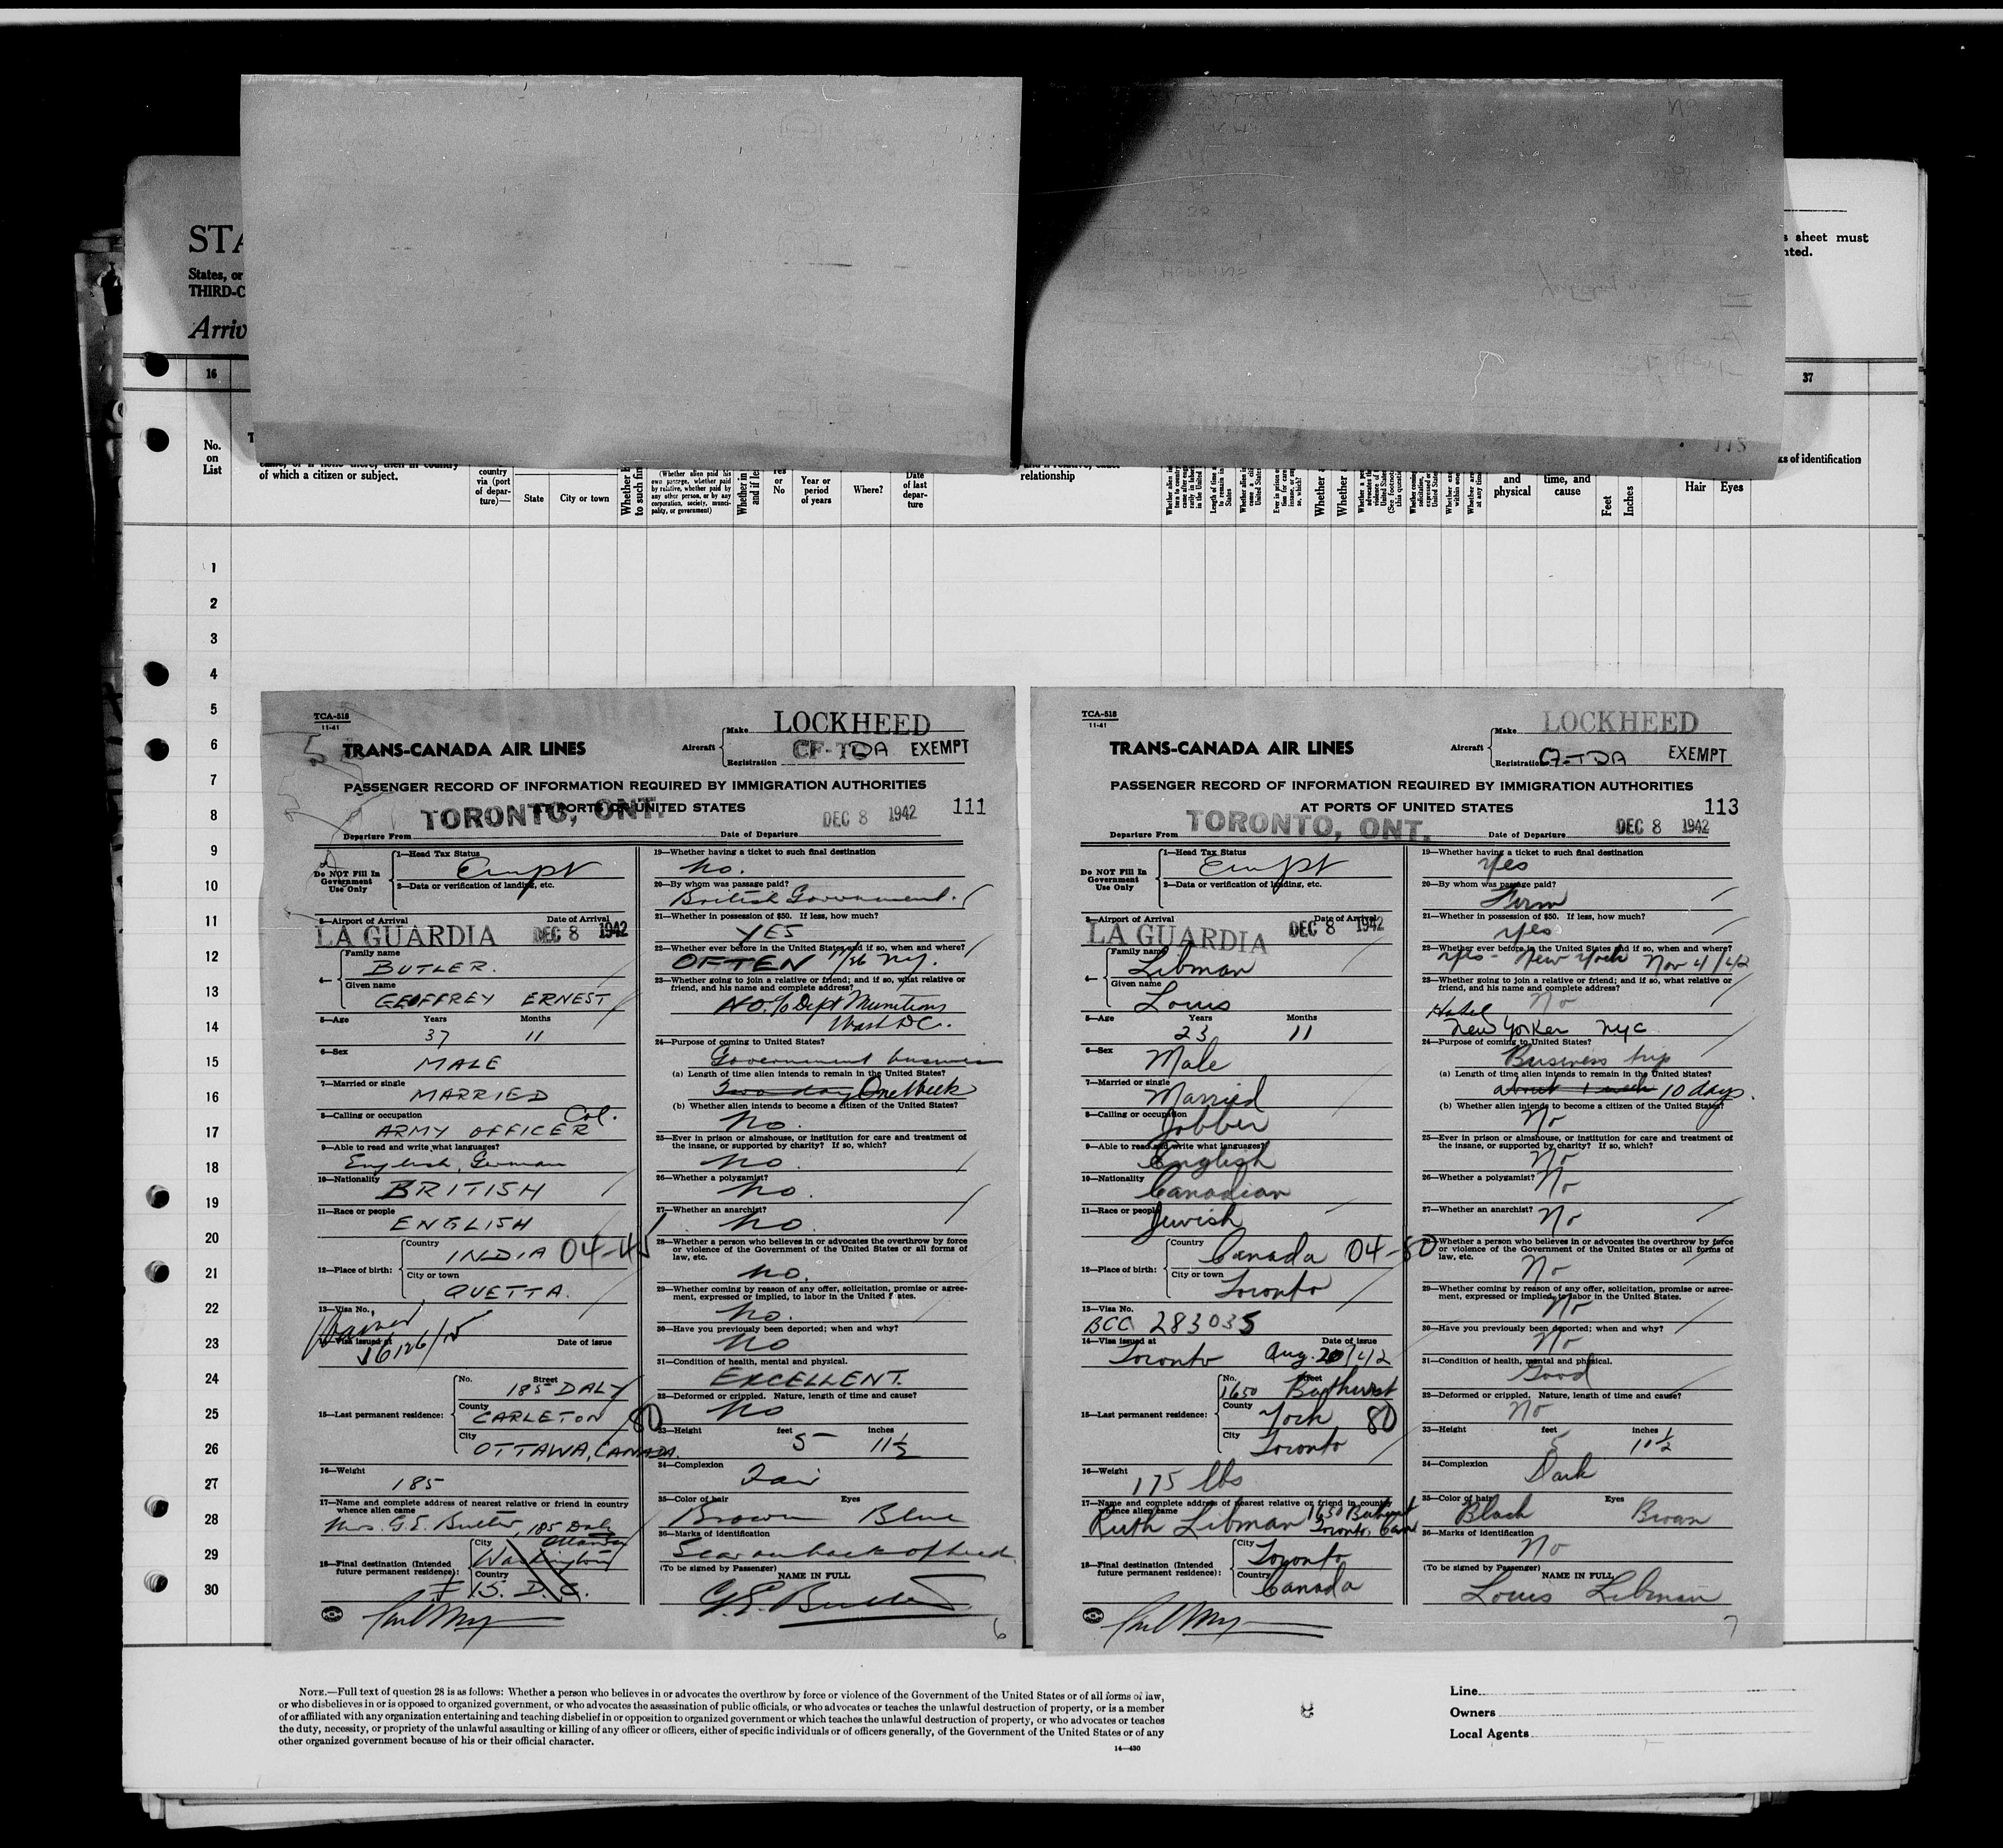 STA
States, or
THIRD-C
Arriv
s sheet must
nted.
16
37
No.
on
List
of which a citizen or subject.
country
via (port
of depar-
ture)—
State
City or town
(Whether alien paid his
own passage, whether paid
by relative, whether paid by
any other person, or by any
corporation, society, munici-
pality, or government)
or
No
Year or
period
of years
Where?
Date
of last
depar-
ture
relationship
and
physical
time, and
cause
Feet
Inches
ks of identification
Hair
Eyes
1
2
3
4
5
6
7
8
9
10
11
12
13
14
15
16
17
18
19
20
21
22
23
24
25
26
27
28
29
30
TCA-518
11-41
TRANS-CANADA AIR LINES
Aircraft
Make LOCKHEED
Registration CF-TDA EXEMPT
PASSENGER RECORD OF INFORMATION REQUIRED BY IMMIGRATION AUTHORITIES
AT PORTS OF UNITED STATES
111
Departure From TORONTO, ONT. Date of Departure DEC 8 1942
Do NOT Fill In
Government
Use Only
1—Head Tax Status
Exempt
2—Data or verification of landing, etc.
3—Airport of Arrival Date of Arrival
LA GUARDIA DEC 8 1942
4— Family name
BUTLER.
Given name
GEOFFREY ERNEST
5—Age Years Months
37 11
6—Sex
MALE
7—Married or single
MARRIED
8—Calling or occupation
ARMY OFFICER Col.
9—Able to read and write what languages?
English, German
10—Nationality
BRITISH
11—Race or people
ENGLISH
12—Place of birth:
Country
INDIA 04-45
City or town
QUETTA.
13—Visa No.
14—Visa issued at Date of issue
15—Last permanent residence:
No. Street
185 DALY
County
CARLETON 80
City
OTTAWA, CANADA.
16—Weight
185
17—Name and complete address of nearest relative or friend in country
whence alien came
Mrs. G.E. Butler, 185 Daly
Ottawa
18—Final destination (Intended
future permanent residence):
City
Washington
Country
D.C.
19—Whether having a ticket to such final destination
No.
20—By whom was passage paid?
British Government.
21—Whether in possession of $50. If less, how much?
YES
22—Whether ever before in the United States and if so, when and where?
OFTEN 11/26 NY.
23—Whether going to join a relative or friend; and if so, what relative or
friend, and his name and complete address?
NO. % Dept Munitions
Wash DC.
24—Purpose of coming to United States?
Government business
(a) Length of time alien intends to remain in the United States?
Two days One Week
(b) Whether alien intends to become a citizen of the United States?
No.
25—Ever in prison or almshouse, or institution for care and treatment of
the insane, or supported by charity? If so, which?
No.
26—Whether a polygamist?
No.
27—Whether an anarchist?
No.
28—Whether a person who believes in or advocates the overthrow by force
or violence of the Government of the United States or all forms of
law, etc.
No.
29—Whether coming by reason of any offer, solicitation, promise or agree-
ment, expressed or implied, to labor in the United States.
No.
30—Have you previously been deported; when and why?
No
31—Condition of health, mental and physical.
EXCELLENT.
32—Deformed or crippled. Nature, length of time and cause?
No
33—Height feet inches
5 11½
34—Complexion
Fair
35—Color of hair Eyes
Brown Blue
36—Marks of identification
Scar on back of head.
(To be signed by Passenger) NAME IN FULL
G.E. Butler
6
TCA-518
11-41
TRANS-CANADA AIR LINES
Aircraft
Make LOCKHEED
Registration CF-TDA EXEMPT
PASSENGER RECORD OF INFORMATION REQUIRED BY IMMIGRATION AUTHORITIES
AT PORTS OF UNITED STATES
113
Departure From TORONTO, ONT. Date of Departure DEC 8 1942
Do NOT Fill In
Government
Use Only
1—Head Tax Status
Exempt
2—Data or verification of landing, etc.
3—Airport of Arrival Date of Arrival
LA GUARDIA DEC 8 1942
4— Family name
Libman
Given name
Louis
5—Age Years Months
23 11
6—Sex
Male
7—Married or single
Married
8—Calling or occupation
Jobber
9—Able to read and write what languages?
English
10—Nationality
Canadian
11—Race or people
Jewish
12—Place of birth:
Country
Canada 04-80
City or town
Toronto
13—Visa No.
BCC 283035
14—Visa issued at Date of issue
Toronto Aug. 20/42
15—Last permanent residence:
No. Street
1650 Bathurst
County
York 80
City
Toronto
16—Weight
175 lbs
17—Name and complete address of nearest relative or friend in country
whence alien came
Ruth Libman 1650 Bathurst
Toronto, Can
18—Final destination (Intended
future permanent residence):
City
Toronto
Country
Canada
19—Whether having a ticket to such final destination
Yes
20—By whom was passage paid?
Firm
21—Whether in possession of $50. If less, how much?
Yes
22—Whether ever before in the United States and if so, when and where?
Yes - New York Nov 4/42
23—Whether going to join a relative or friend; and if so, what relative or
friend, and his name and complete address?
No
Hotel
New Yorker NYC
24—Purpose of coming to United States?
Business trip
(a) Length of time alien intends to remain in the United States?
about 1 week 10 days.
(b) Whether alien intends to become a citizen of the United States?
No
25—Ever in prison or almshouse, or institution for care and treatment of
the insane, or supported by charity? If so, which?
No
26—Whether a polygamist?
No
27—Whether an anarchist?
No
28—Whether a person who believes in or advocates the overthrow by force
or violence of the Government of the United States or all forms of
law, etc.
No
29—Whether coming by reason of any offer, solicitation, promise or agree-
ment, expressed or implied, to labor in the United States.
No
30—Have you previously been deported; when and why?
No
31—Condition of health, mental and physical.
Good
32—Deformed or crippled. Nature, length of time and cause?
No
33—Height feet inches
5 10½
34—Complexion
Dark
35—Color of hair Eyes
Black Brown
36—Marks of identification
No
(To be signed by Passenger) NAME IN FULL
Louis Libman
7
NOTE.—Full text of question 28 is as follows: Whether a person who believes in or advocates the overthrow by force or violence of the Government of the United States or of all forms of law,
or who disbelieves in or is opposed to organized government, or who advocates the assassination of public officials, or who advocates or teaches the unlawful destruction of property, or is a member
of or affiliated with any organization entertaining and teaching disbelief in or opposition to organized government or which teaches the unlawful destruction of property, or who advocates or teaches
the duty, necessity, or propriety of the unlawful assaulting or killing of any officer or officers, either of specific individuals or of officers generally, of the Government of the United States or of any
other organized government because of his or their official character.
14—430
Line
Owners
Local Agents